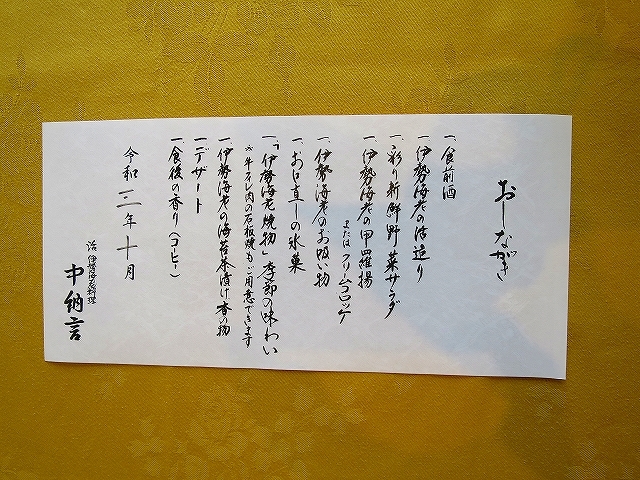 おしながき
一、食前酒
一、伊勢海老の活造り
一、彩り新鮮野菜サラダ
一、伊勢海老の甲羅揚
またはクリームコロッケ
一、伊勢海老のお吸い物
一、お口直しの氷菓
一、「伊勢海老焼物」季節の味わい
※牛ヒレ肉の石板焼もご用意できます
一、伊勢海老の海苔茶漬け 香の物
一、デザート
一、食後の香り(コーヒー)
令和三年十月
活 伊勢海老料理
中納言